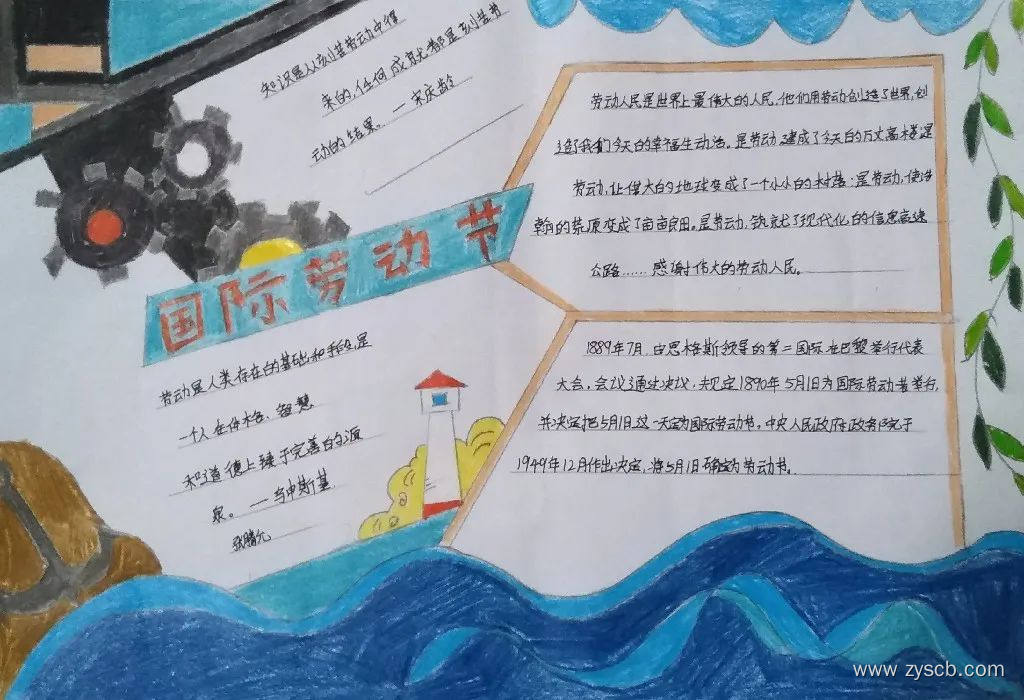 知识是从刻苦劳动中得
来的,任何成就都是刻苦劳
动的结果。——宋庆龄
国际劳动节
劳动是人类存在的基础和手段,是
一个人在体格、智慧
和道德上臻于完善的源
泉。——乌申斯基
张腾允
劳动人民是世界上最伟大的人民,他们用劳动创造了世界,创
造了我们今天的幸福生动活。是劳动,建成了今天的万丈高楼;是
劳动,让偌大的地球变成了一个小小的村落;是劳动,使浩
瀚的荒原变成了亩亩良田。是劳动,筑就了现代化的信息高速
公路……感谢伟大的劳动人民。
1889年7月,由恩格斯领导的第二国际在巴黎举行代表
大会,会议通过决议,规定1890年5月1日为国际劳动者举行,
并决定把5月1日这一天定为国际劳动节。中央人民政府政务院于
1949年12月作出决定,将5月1日确定为劳动节。
www.zyscb.com